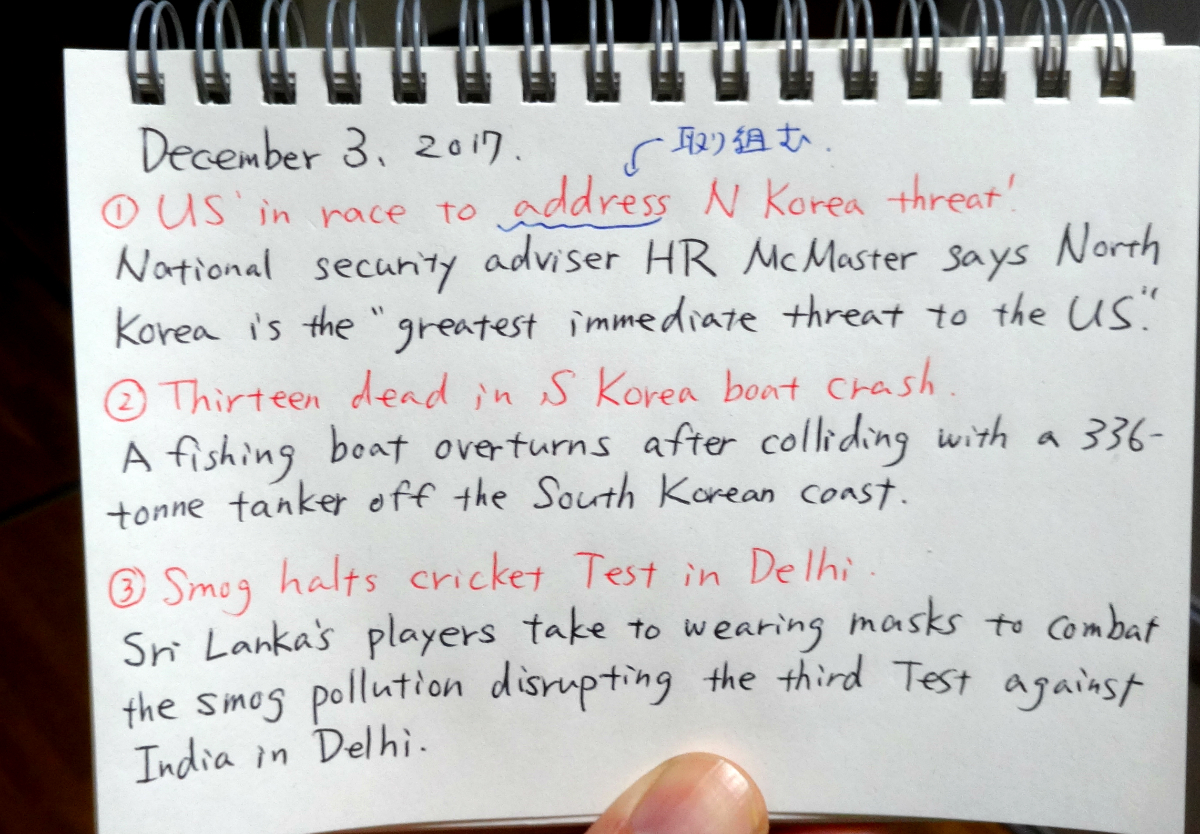 December 3、2017.
取り組む.
① US 'in race to address N Korea threat'
National security adviser HR McMaster says North
Korea is the "greatest immediate threat to the US."
② Thirteen dead in S Korea boat crash.
A fishing boat overturns after colliding with a 336-
tonne tanker off the South Korean coast.
③ Smog halts cricket Test in Delhi.
Sri Lanka's players take to wearing masks to combat
the smog pollution disrupting the third Test against
India in Delhi.